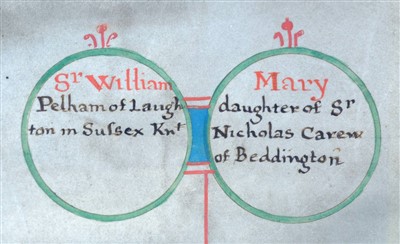 Sr William
Pelham of Laugh
ton in Sussex Knt
Mary
daughter of Sr
Nicholas Carew
of Beddington